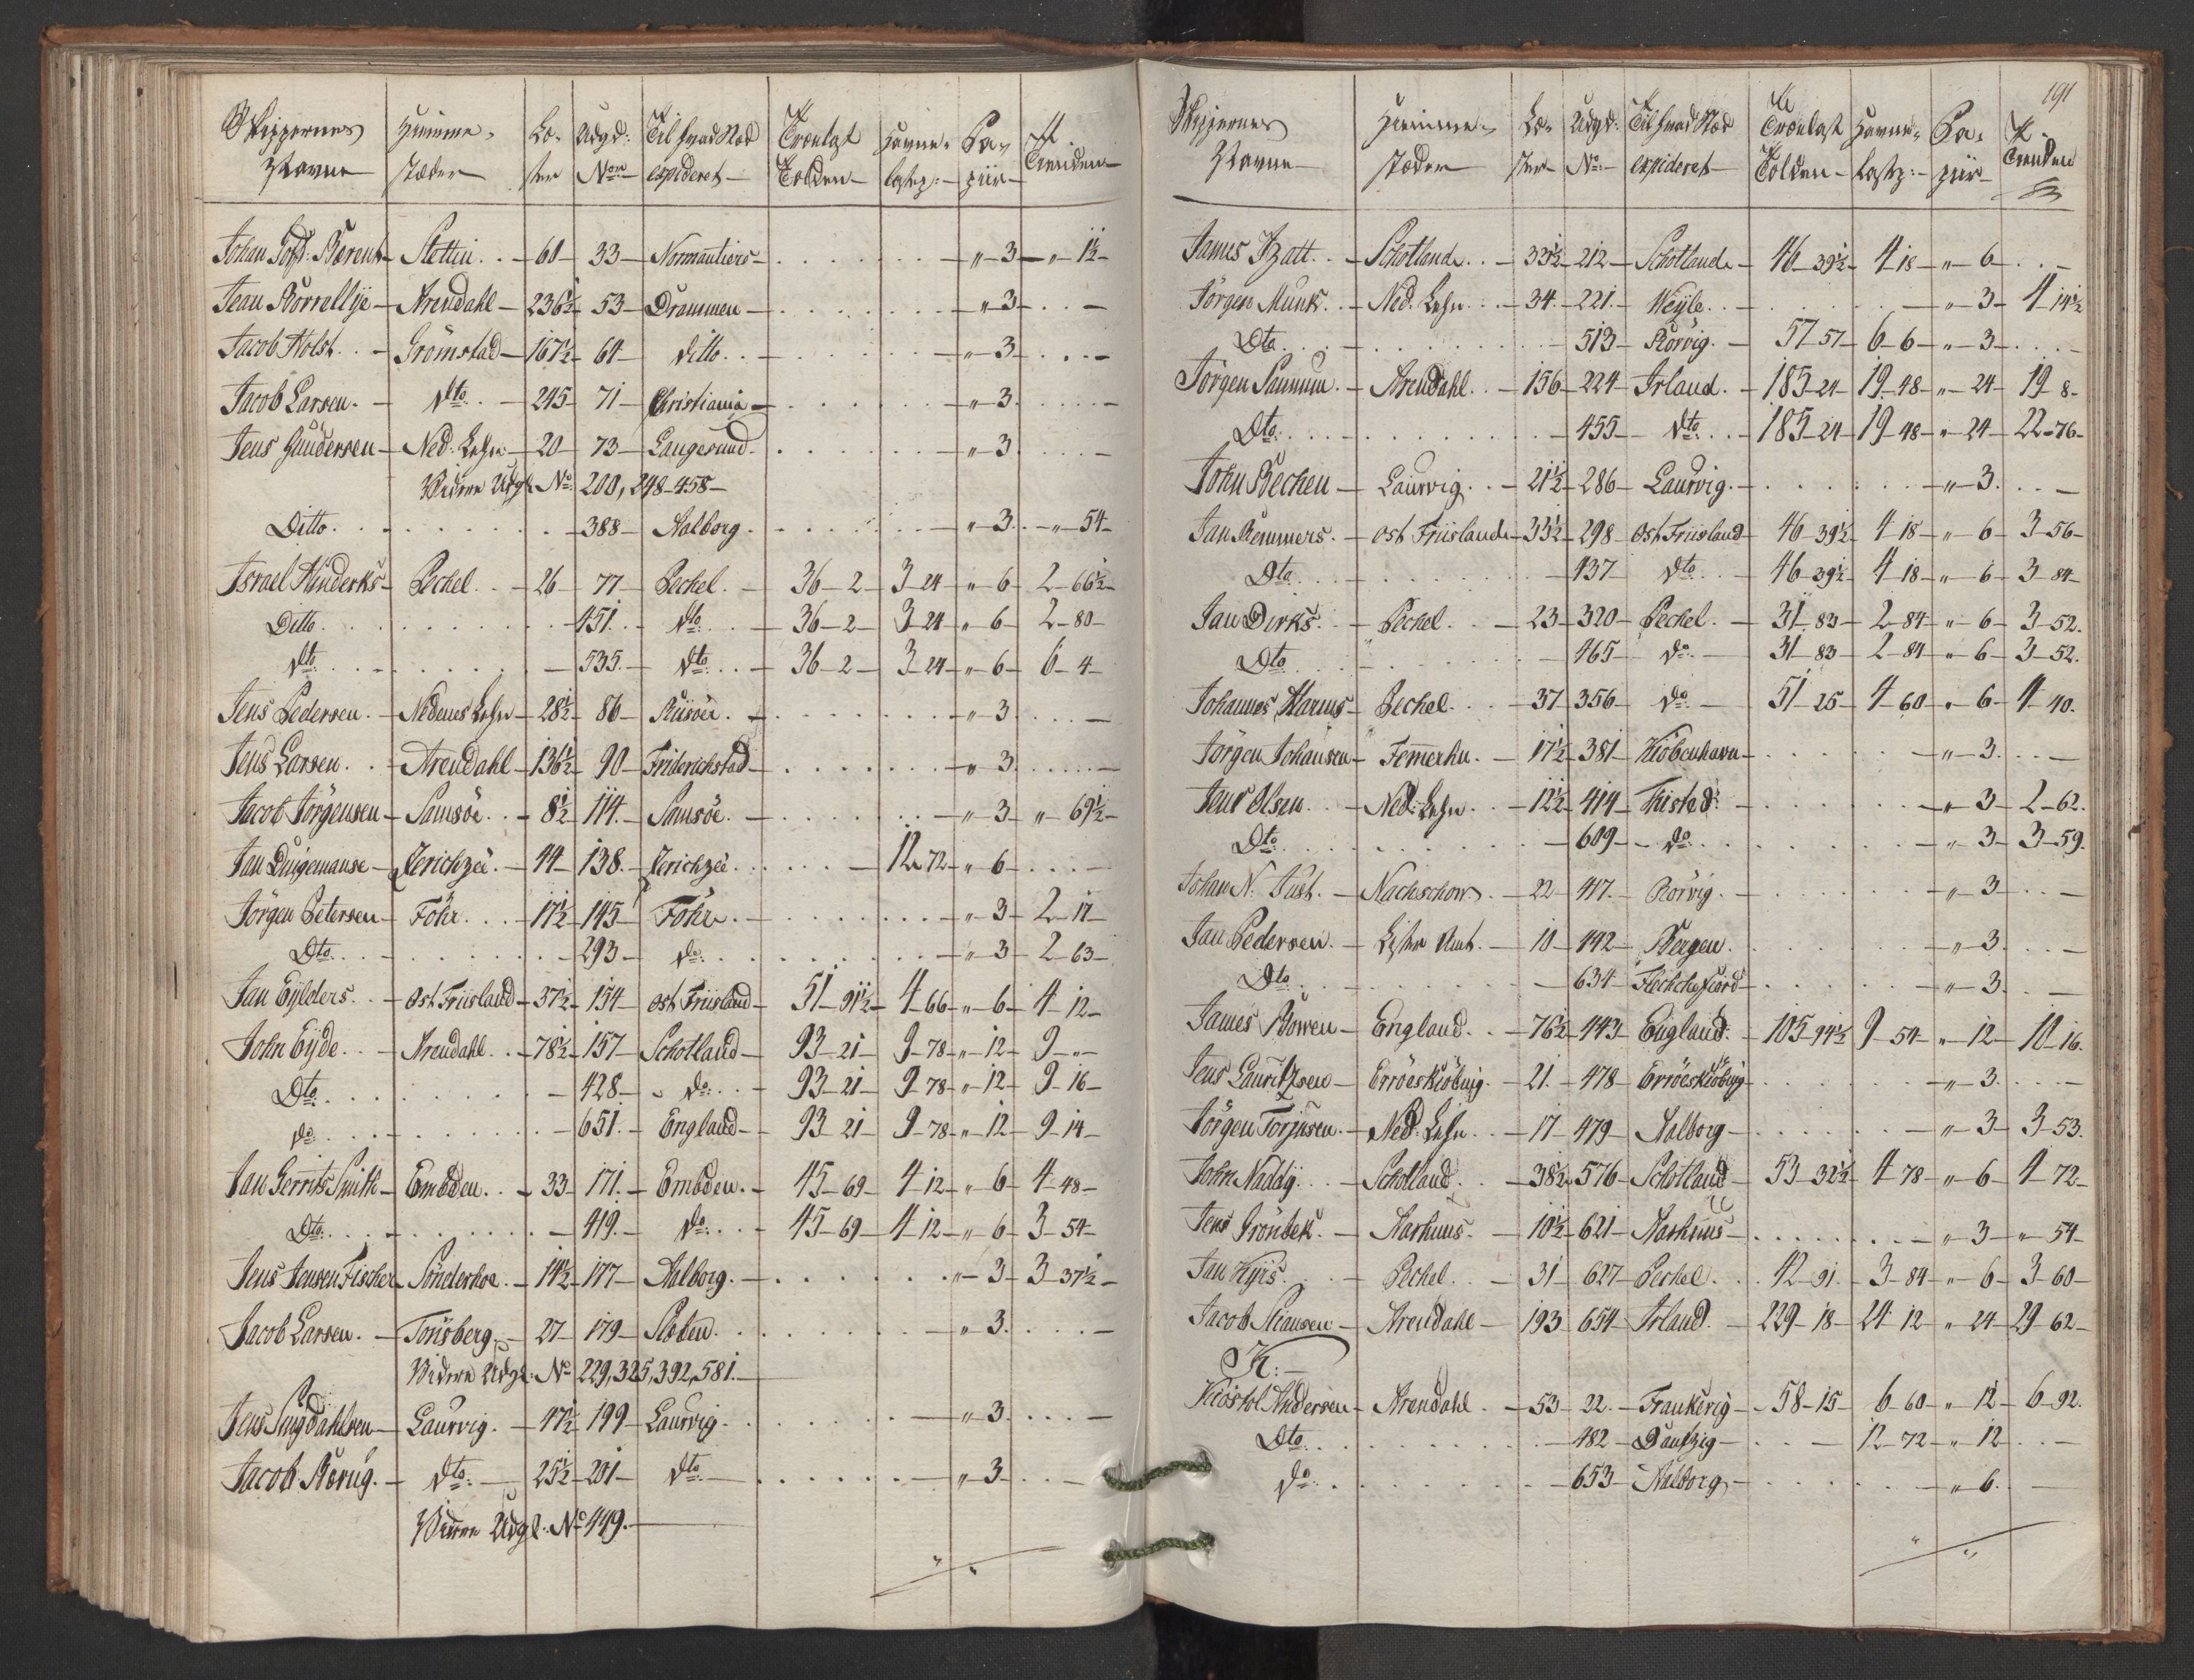 Skippernes Hiemme- Læ- Udgd: Til hvad Stæd Trælast Havne- Pa- Tienden
Navne stæder ster No expideret Tolden lastp: piir
Johan Gotf: Berent Stettin 60 33 Normantiers " 3 " 1½
Jean Borrellye Arendahl 236½ 53 Drammen " 3
Jacob Holst Grömstad 167½ 64 ditto " 3
Jacob Larsen dto 245 71 Christiania " 3
Jens Gundersen Ned: Lehn 20 73 Langesund " 3
Videre Udgl No 200, 248-458
Ditto 388 Aalborg " 3 " 54
Israel Hinderks Pechel 26 77 Pechel 36-2 3-24 " 6 2-66½
Ditto 451 dto 36-2 3-24 " 6 2-80
dto 535 dto 36-2 3-24 " 6 6-4
Jens Pedersen Nedenes Lehn 28½ 86 Riisöer " 3
Jens Larsen Arendahl 136½ 90 Friderichstad " 3
Jacob Jörgensen Samsöe 8½ 114 Samsöe " 3 " 69½
Jan Duigemanse Zerichzee 44 138 Zerichzee 12-72 " 6
Jörgen Petersen Föhr 17½ 145 Föhr " 3 2-17
Dto 293 do " 3 2-63
Jan Eylders Ost Friisland 37½ 154 Ost Friisland 51-91½ 4-66 " 6 4-12
John Eyde Arendahl 78½ 157 Schotland 93-21 9-78 " 12 9-"
Dto 428 do 93-21 9-78 " 12 9-16
do 651 England 93-21 9-78 " 12 9-14
Jan Gerrits Smith Embden 33 171 Embden 45-69 4-12 " 6 4-48
Dto 419 do 45-69 4-12 " 6 3-54
Jens Jensen Fischer Sönderhoe 14½ 177 Aalborg " 3 3-37½
Jacob Larsen Tonsberg 27 179 Sleben " 3
Videre Udgl: No 229, 325, 392, 581
Jens Singdahlsen Laurvig 47½ 199 Laurvig " 3
Jacob Borug dto 25½ 201 dto " 3
Videre Udgl. No 449
191
Skippernes Hiemme- Læ- Udgd: Til hvad Stæd Trælast Havne- Pa- Tienden
Navne stæder ster No expideret Tolden lastp: piir
James Izatt Schotland 33½ 212 Schotland 46-39½ 4-18 " 6
Jörgen Munk Ned. Lehn 34 221 Weyle " 3 4-14½
Dto 513 Rörvig 57-57 6-6 " 3
Jörgen Sannum Arendahl 156 224 Irland 185-24 19-48 " 24 19-8
Dto 455 dto 185-24 19-48 " 24 22-76
John Bechen Laurvig 21½ 286 Laurvig " 3
Jan Remmers Ost Friisland 33½ 298 Ost Friisland 46-39½ 4-18 " 6 3-56
Dto 437 dto 46-39½ 4-18 " 6 3-84
Jan Dirks Pechel 23 320 Pechel 31-83 2-84 " 6 3-52
Dto 465 do 31-83 2-84 " 6 3-52
Johannes Harms Pechel 37 356 do 51-25 4-60 " 6 4-40
Jörgen Johansen Femerhn 17½ 381 Kiöbenhavn " 3
Jens Olsen Ned: Lehn 12½ 414 Thisted " 3 2-62
Dto 609 do " 3 3-59
Johan N. Just Nachschow 22 417 Rörvig " 3
Jan Pedersen Lister Amt 10 442 Bergen " 3
Dto 634 Flechefiord " 3
James Bowen England 76½ 443 England 105-94½ 9-54 " 12 10-16
Jens Lauritzsen Erröeskiöbing 21 478 Erröeskiöbing " 3
Jörgen Torjusen Ned: Lehn 17 479 Aalborg " 3 3-53
John Naddy Schotland 38½ 576 Schotland 53-32½ 4-78 " 6 4-72
Jens Grönbek Aarhuus 10½ 621 Aarhuus " 3 " 54
Jan Kyis Pechel 31 627 Pechel 42-91 3-84 " 6 3-60
Jacob Stiansen Arendahl 193 654 Irland 229-18 24-12 " 24 29-62
K:
Kiöstol Andersen Arendahl 53 22 Frankerig 58-15 6-60 " 12 6-92
Dto 482 Dantzig 12-72 " 12
do 653 Aalborg " 6